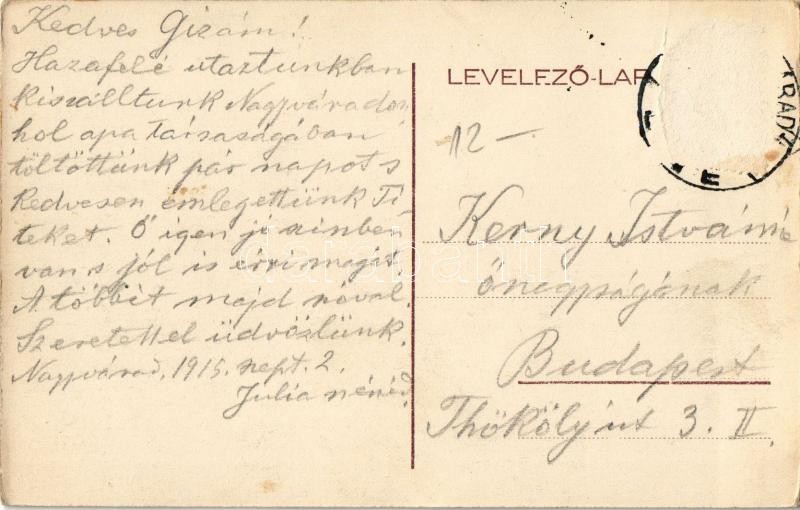 Kedves Gizám!
Hazafelé utaztunkban
kiszálltunk Nagyváradon
hol apa társaságában
töltöttünk pár napot s
kedvesen emlegettünk Ti
teket. Ő igen jó színben
van s jól is érzi magát.
A többit majd szóval.
Szeretettel üdvözlünk.
Nagyvárad, 1915. szept. 2.
Julia nénéd.
LEVELEZŐ-LAP
12-
Kerny Istvánné
őnagyságának
Budapest
Thököly út 3. II.
darabanth